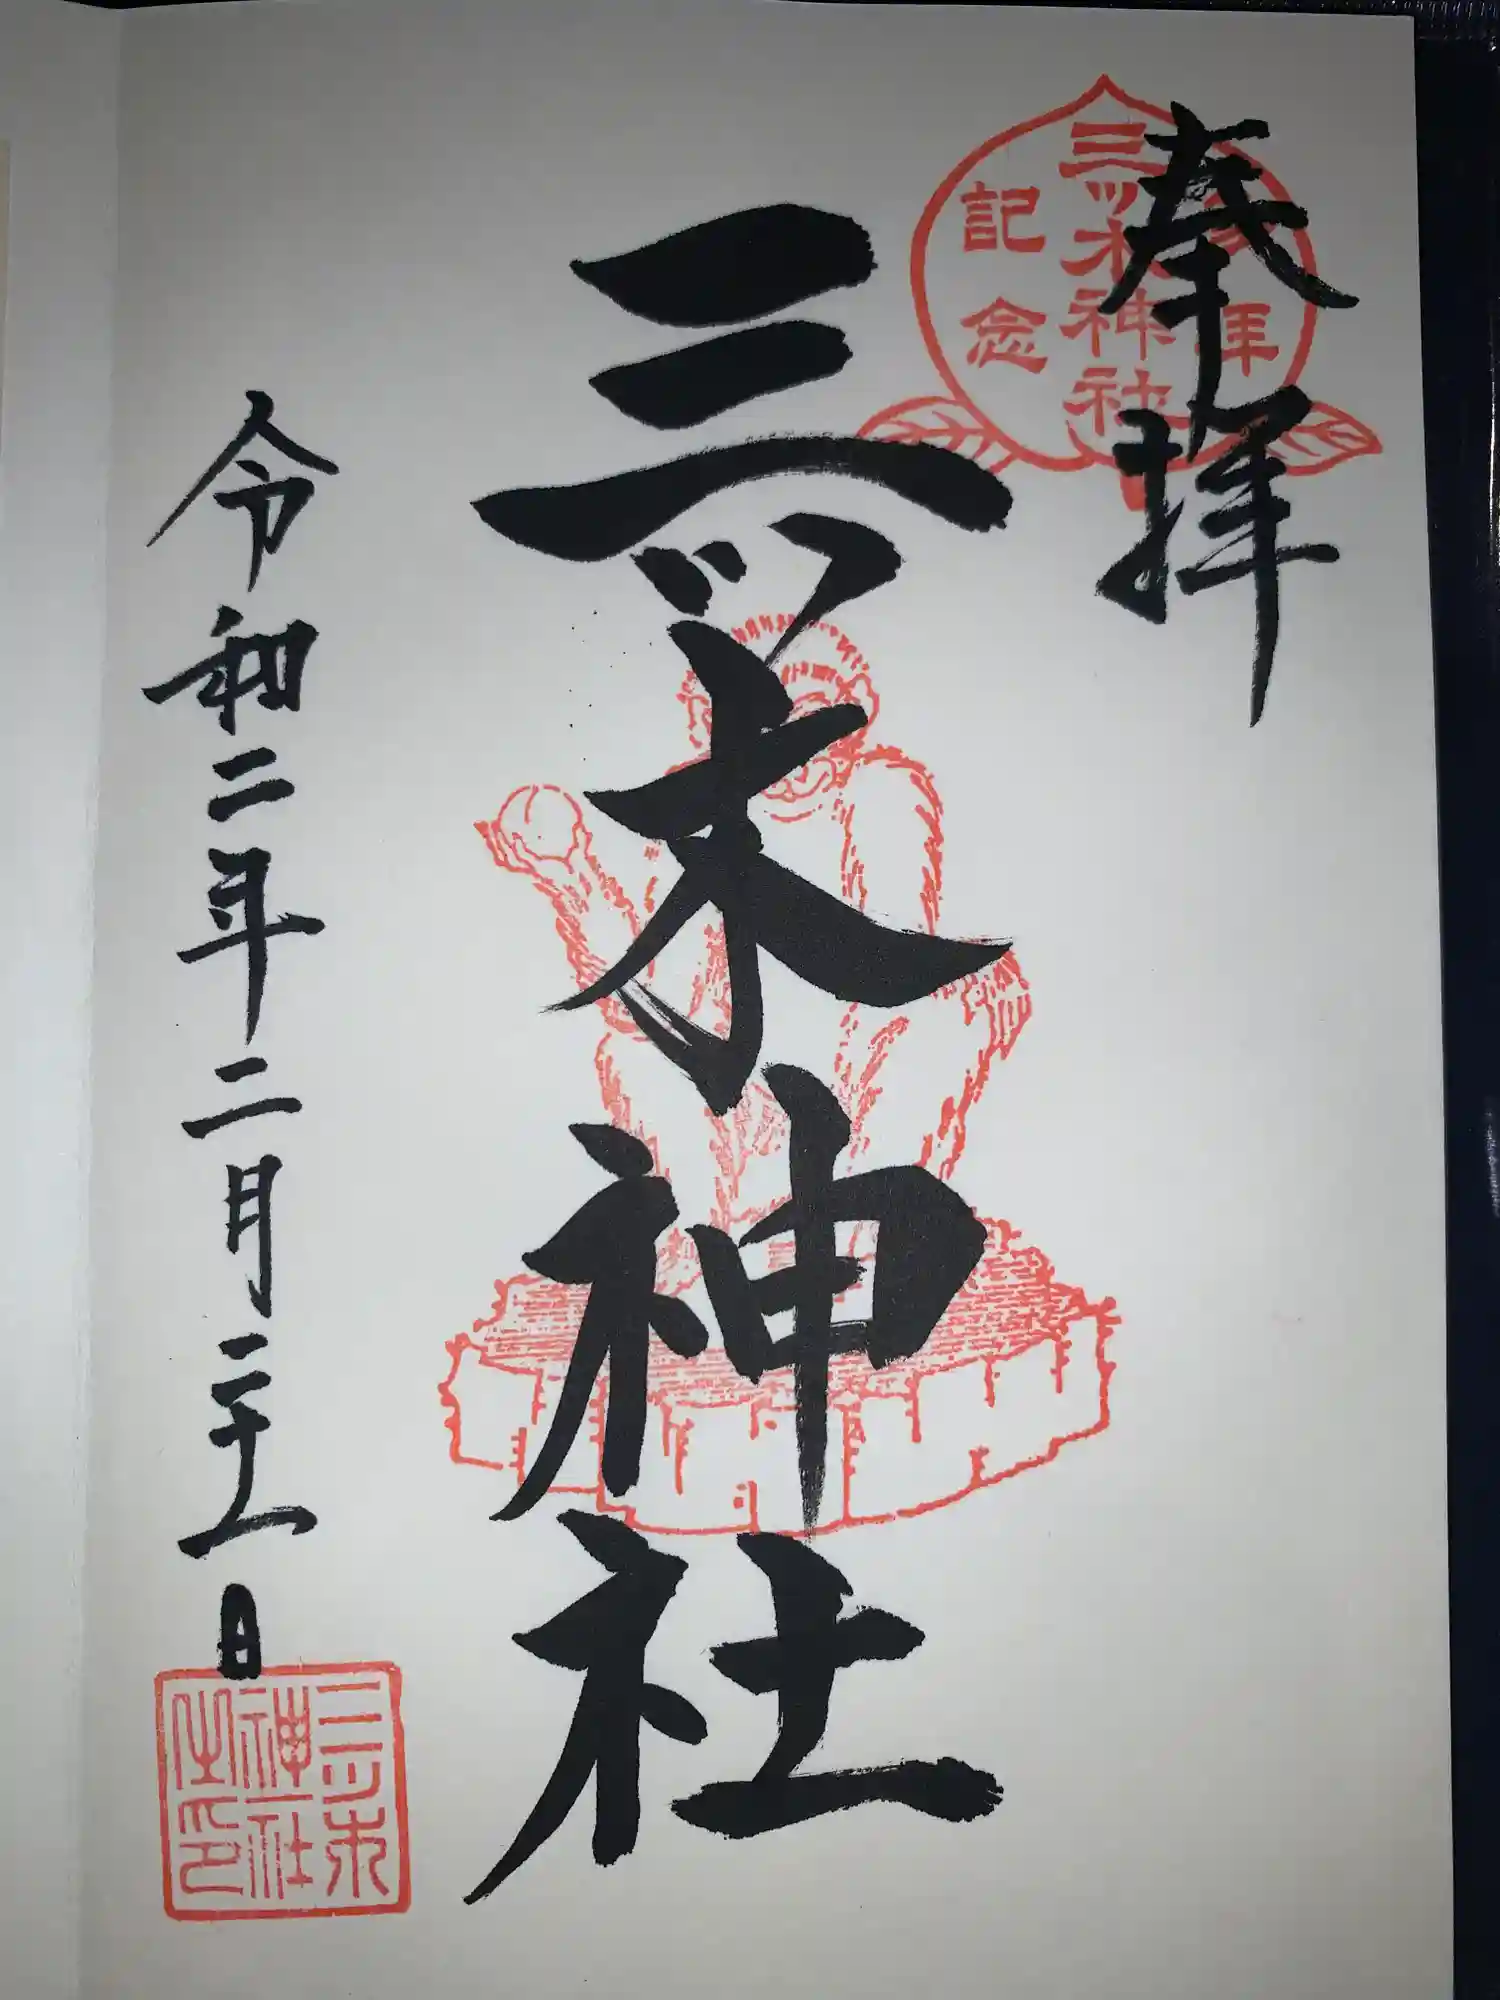 奉拝
参拝
三ッ木神社
記念
三ッ木神社
令和二年二月二十一日
三ッ木
神社
之印